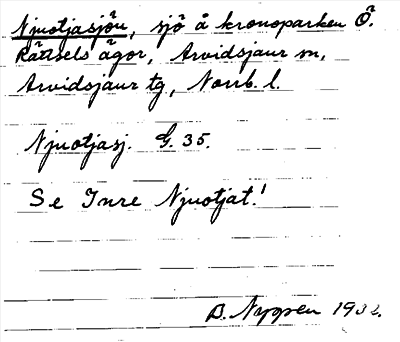 Njuotjasjön, sjö å kronoparken Ö.
Rättsels ägor, Arvidsjaur sn,
Arvidsjaur tg, Norrb. l.
Njuotjasj. G. 35.
Se Inre Njuotjat!
B. Nyppen 1932.